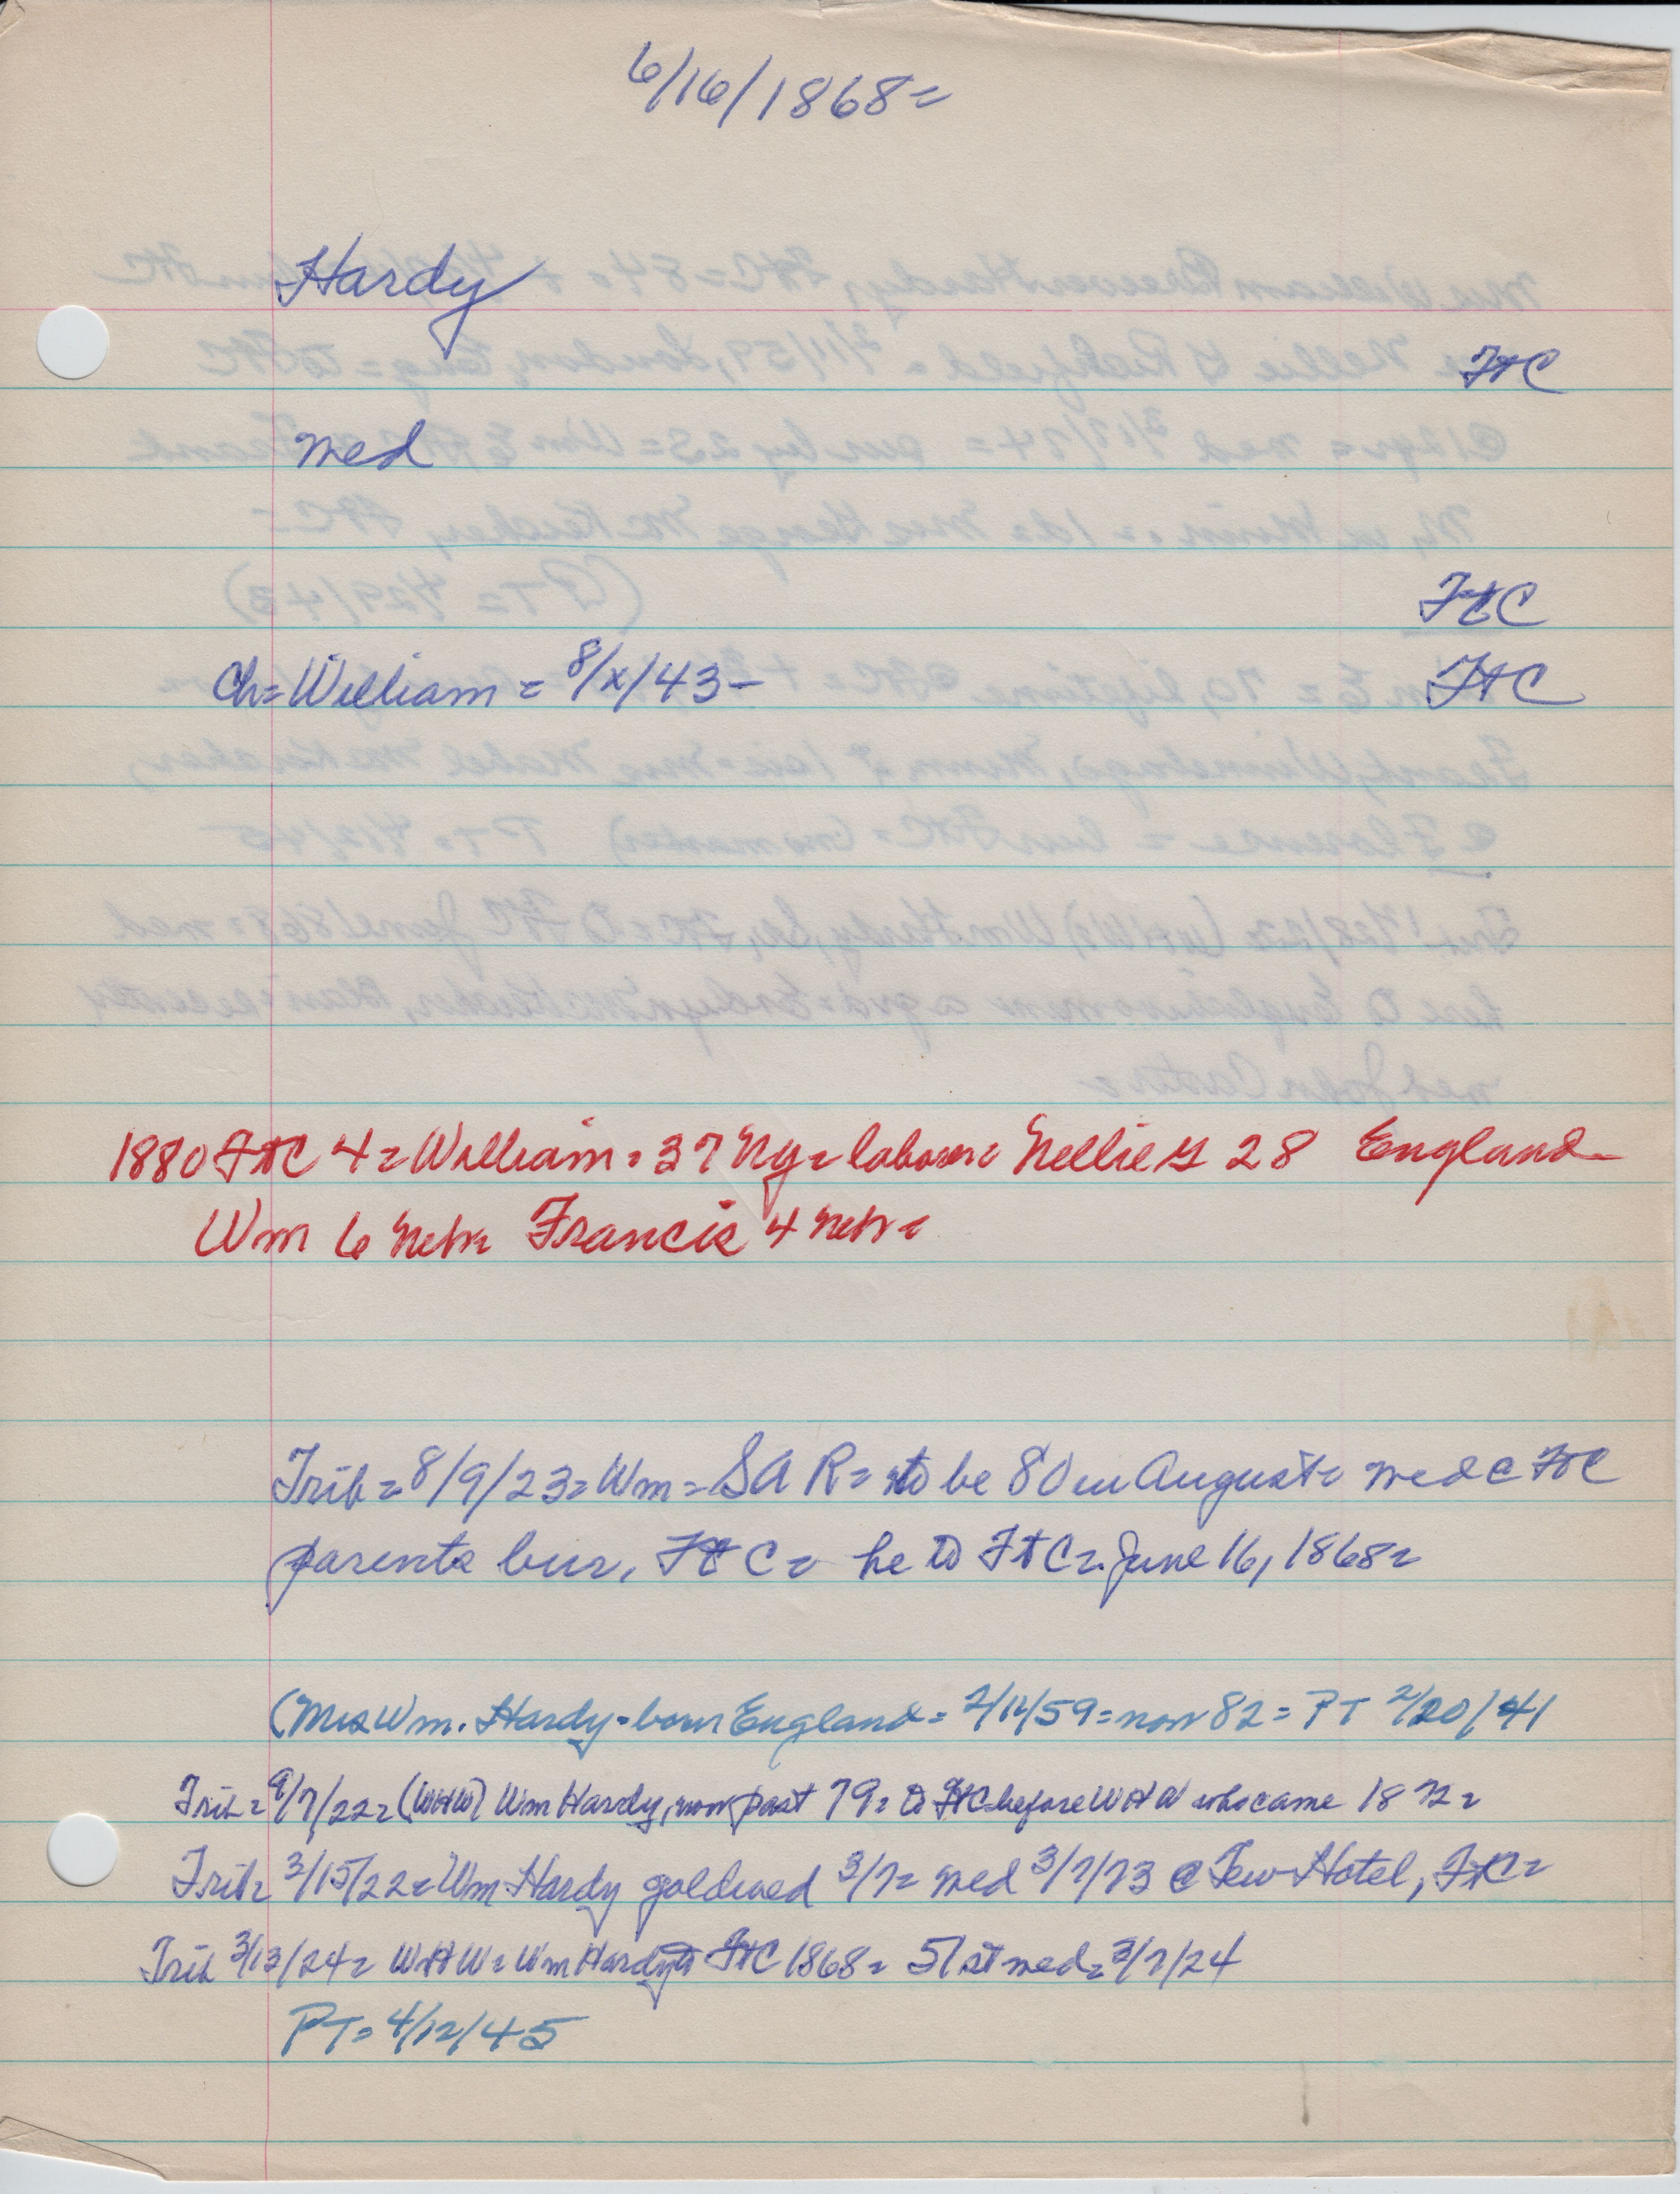 6/16/1868=
Hardy
FtC
med
FtC
Ch= William = 8/x/43-
FtC
1880 FtC 4= William = 37 Ny = laborer = Nellie G 28 England-
Wm 6 Nebr Francis 4 Nebr =
Trib = 8/9/23= Wm = SAR = to be 80 in August = med @ FtC
parents bur, FtC = he to FtC = June 16, 1868=
(Mrs Wm. Hardy - born England = 2/11/59 = now 82 = PT 2/20/41
Trib = 9/7/22= (WHW) Wm Hardy, now past 79= to FtC before WHW who came 1872=
Trib= 3/15/22= Wm Hardy gold wed 3/7= med 3/7/73 @ Tew Hotel, FtC=
Trib 3/13/24= WHW= Wm Hardy to FtC 1868= 51st wed= 3/7/24
PT= 4/12/45